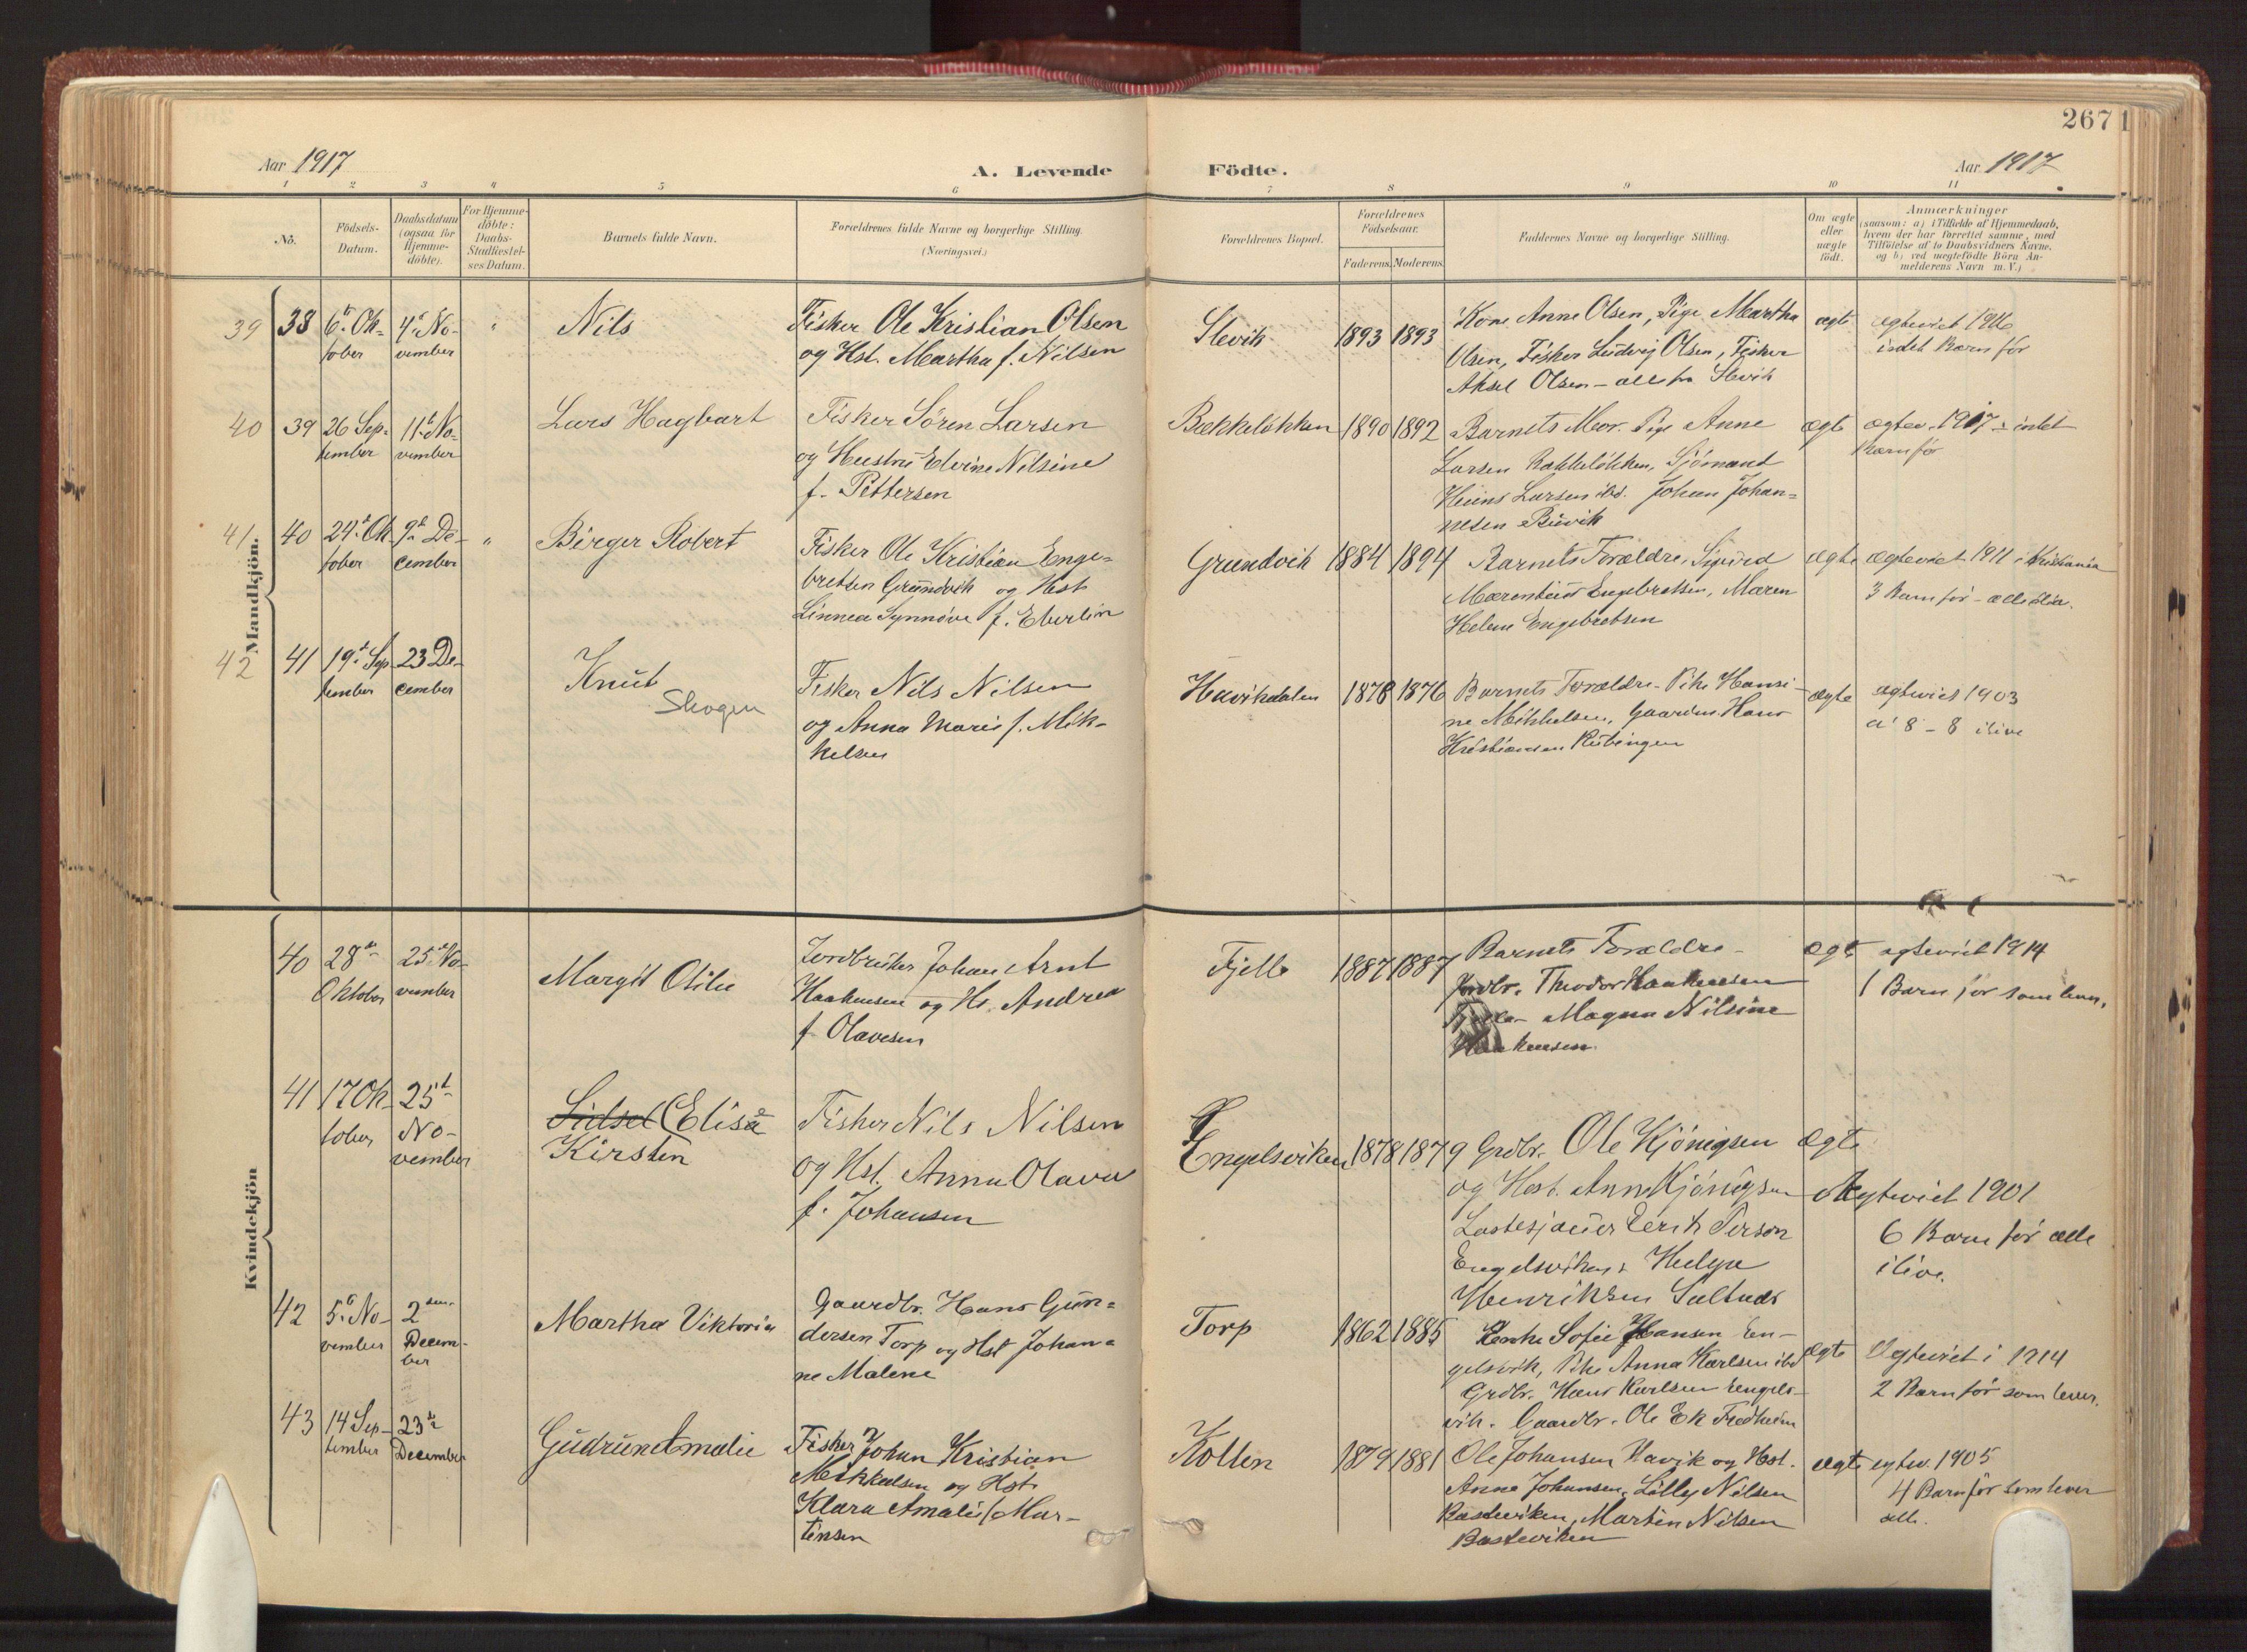 267
Aar 1917
A. Levende
Födte.
Aar 1917
1 2 3 4 5 6 7 8 9 10 11
No.
Födsels-
Datum.
Daabsdatum
(ogsaa for
Hjemme-
döbte).
For Hjemme-
döbte:
Daabs-
Stadfæstel-
ses Datum.
Barnets fulde Navn.
Forældrenes fulde Navne og borgerlige Stilling.
(Næringsvei.)
Forældrenes Bopæl.
Forældrenes
Födselsaar.
Faderens. Moderens.
Faddernes Navne og borgerlige Stilling.
Om ægte
eller
uægte
födt.
Anmærkninger
(saasom: a) i Tilfælde af Hjemmedaab,
hvem der har forrettet samme, med
Tilföielse af to Daabsvidners Navne.
og b) ved uægtefödte Börn An-
melderens Navn m. V.)
Mandkjön.
39 38
6t Ok-
tober
4de No-
vember
Nils
Fisker Ole Kristian Olsen
og Hst. Martha f. Nilsen
Slevik
1893 1893
Kone Anne Olsen, Pige Martha
Olsen, Fisker Ludvig Olsen, Fisker
Aksel Olsen - alle fra Slevik
ægte
ægteviet 1916
intet Barn før
40 39
26 Sep-
tember
11t No-
vember
Lars Hagbart
Fisker Sören Larsen
og Hustru Elvine Nilsine
f. Pettersen
Bækkeløkken
1890 1892
Barnets Mor. Pige Anne
Larsen Bækkeløkken, Sjömand
Hans Larsen ibd. Johan Johan-
nesen Buvik
ægte
ægtev. 1917 - intet
Barn før
41 40
24t Ok-
tober
9de De-
cember
Birger Robert
Fisker Ole Kristian Enge-
bretsen Grundvik og Hst.
Linnea Synnöve f. Eberlin
Grundvik
1884 1894
Barnets Forældre, Sigurd
Engebretsen, Maren
Helene Engebretsen
ægte
ægteviet 1911 i Kristiania
3 Barn før - alle
42 41
19t Sep-
tember
23 De-
cember
Knut
Skogen
Fisker Nils Nilsen
og Anna Marie f. Mik-
kelsen
Hauikdalen
1878 1876
Barnets Forældre - Pike Hansi-
ne Mikkelsen, Gaardm. Hans
Kristiansen
ægte
ægteviet 1903
a' 8 - 8 ilive
Kvindekjön
40
28de
Oktober
25de No-
vember
Margit Otilie
Jordbruker Johan Arnt
Haakensen og Hs. Andrea
f. Olavesen
Fjelle
1887 1887
Barnets Forældre -
Jordbr. Theodor Haakensen
Fjelle - Magna Nilsine
Haakensen.
ægte
ægteviet 1914
1 Barn før som lever.
41
17 Ok-
tober
25t
No-
vember
Sidsel Elise
Kirsten
Fisker Nils Nilsen
og Hst. Anna Olava
f. Johansen
Engelsviken
1878 1879
Grdbr. Ole Kjönigsen
og Hst. Anna Kjönigsen
Eerik Person
Engelsviken, Helga
Henriksen Saltnes
ægte
Ægteviet 1901
6 Barn før alle
ilive.
42
5t No-
vember
2den
Decem-
ber
Martha Viktoria
Gaardbr. Hans Gun-
dersen Torp og Hst Johan-
ne Malene
Torp
1862 1885
Enke Sofie Hansen En-
gelsvik, Pike Anna Karlsen ibd
Grdbr. Hans Karlsen Engels-
vik. Gaardbr. Ole Ek Fredheim
ægte
Ægteviet i 1914
2 Barn før som lever.
43
14 Sep-
tember
23de
December
Gudrun Amalie
Fisker Johan Kristian
Mikkelsen og Hst.
Klara Amalie f. Mar-
tinsen
Kollen
1879 1881
Ole Johansen Havik og Hst.
Anne Johansen, Lilly Nilsen
Basteviken, Martin Nilsen
Basteviken
ægte
egtev. 1905
4 Barn før som lever
alle.